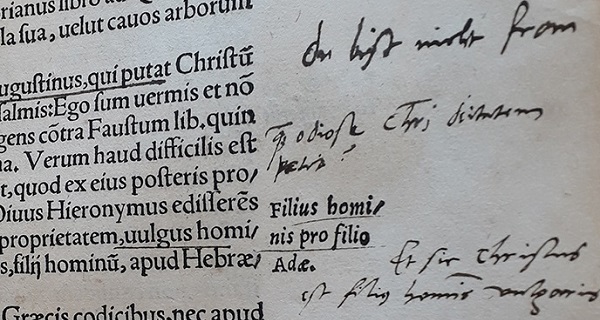 rianus libro ad
la ſua, uelut cauos arborum
uguſtinus, qui putat Chriſtũ
ſalmis: Ego ſum uermis et nõ
gens cõtra Fauſtum lib. quin
na. Verum haud difficilis eſt
t, quod ex eius poſteris pro/
Diuus Hieronymus ediſſerẽs
proprietatem, uulgus homi/
s, filij hominũ, apud Hebræ/
Græcis codicibus, nec apud
Du biſt nicht from
odioſe
Filius homi/
nis pro filio
Adæ.
Et ſic Chriſtus
eſt filius homīs vulgaris